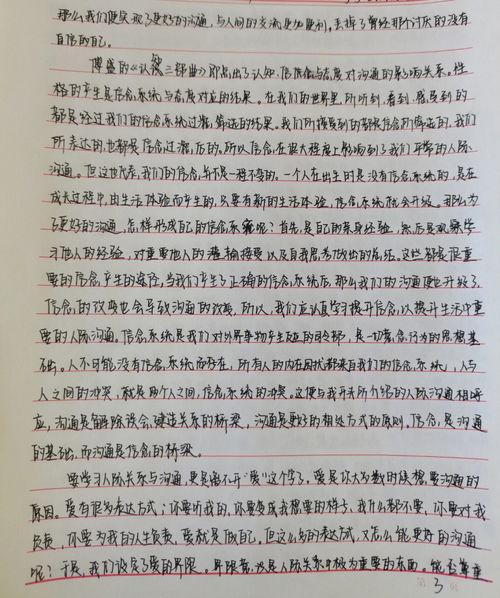 那么我们便实现了更好的沟通，与人间的交流更加便利。丢掉了曾经那个讨厌的没有
自信的自己。
傅盛的《认知三部曲》即点出了认知、信念与态度对沟通的影响关系。性
格的产生是信念系统与态度对应的结果。在我们的世界里，所听到、看到、感受到的
都是经过我们的信念系统过滤、筛选的结果。我们所接受到的都是信念所筛选的，我们
所表达的也都是信念过滤后的。所以信念在很大程度上影响到了我们平常的人际
沟通。但这也代表，我们的信念，并不是一程不变的。一个人在出生时是没有信念系统的，是在
成长过程中，由生活体验而产生的，只要有新的生活体验，信念系统就会升级。那么为
了更好的沟通，怎样形成自己的信念系统呢？首先是自己的亲身经验，然后是观察学
习他人的经验，对重要他人的灌输接受以及自我思考做出的总结。这些都是很重
要的信念产生的途径，当我们产生了正确的信念系统后，那么我们的沟通便也升级了，
信念的改变也会导致沟通的改变，所以，我们应认真学习提升信念，以提升生活中重
要的人际沟通。信念系统是我们对外界事物产生反应的司令部，是一切意念行为的思想基
础。人不可能没有信念系统而存在，所有人的内在困扰都来自我们的信念系统，人与
人之间的冲突，就是两个人之间，信念系统的冲突。这便与我开头所介绍的人际沟通相呼
应，沟通是解除误会，建造关系的桥梁，沟通是更好的相处方式的原则。信念，是沟通
的基础，而沟通是信念的桥梁。
要学习人际关系与沟通，更是离不开“爱”这个字了，爱是你大多数时候想要沟通的
原因。爱有很多表达方式：你要听我的，你要变成我想要的样子，我什么都不要，你要对我
负责，你要为我的人生负责，爱就是做自己。但这么多的表达方式，又怎么能更好的沟通
呢？于是，我们设定了爱的界限。界限感，这是人际关系中极为重要的东西。能否尊重
第 3 页